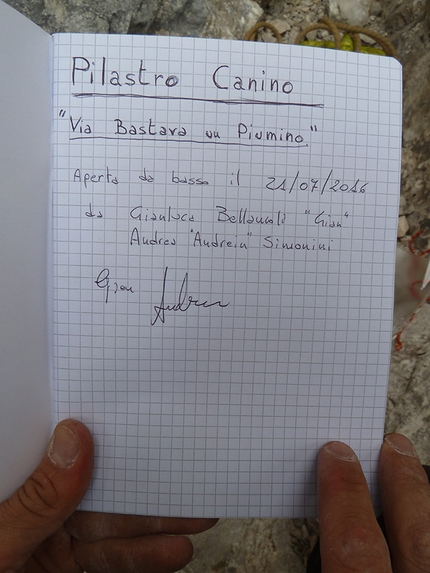 Pilastro Canino
"Via Bastava un Piumino."
Aperta da basso il 21/07/2016
da Gianluca Bellamoli "Gian"
Andrea "Andrein" Simonini
Gian Andrea